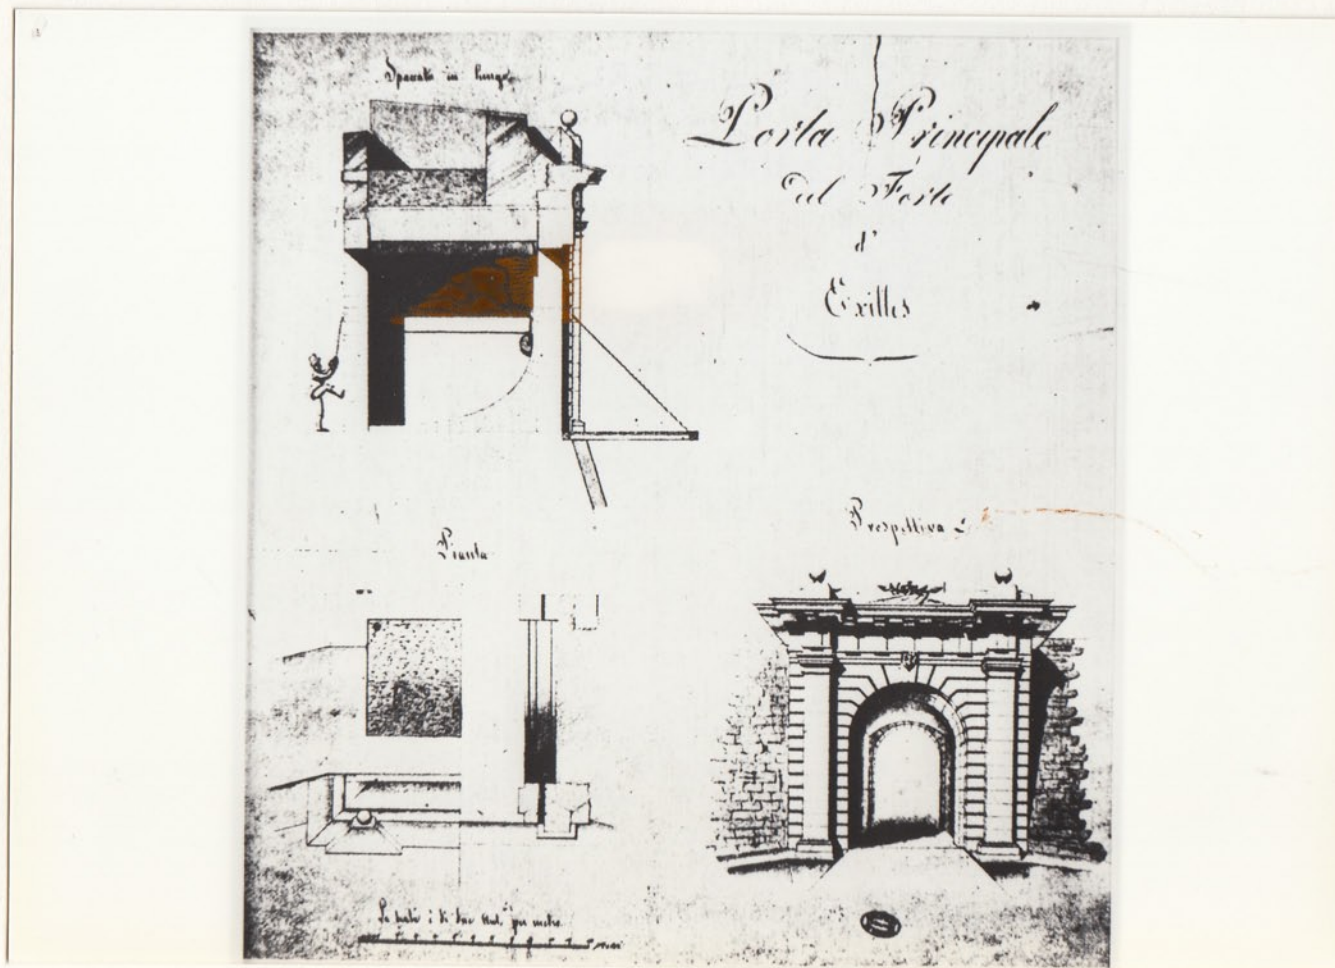 Spaccato in lungo
Porta Principale
del Forte
d'
Exilles
Prospettiva
Pianta
La scala è di due per metro